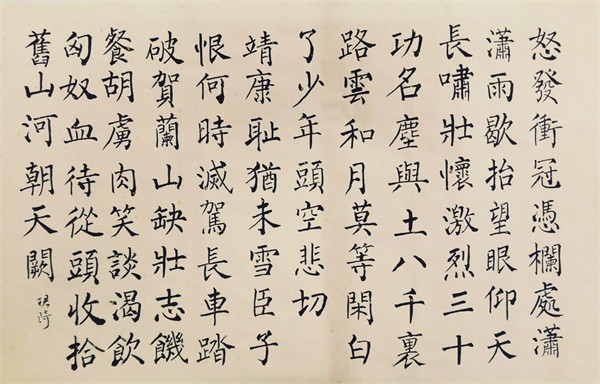 怒發衝冠憑欄處瀟
瀟雨歇抬望眼仰天
長嘯壯懷激烈三十
功名塵與土八千裏
路雲和月莫等閑白
了少年頭空悲切
靖康耻猶未雪臣子
恨何時滅駕長車踏
破賀蘭山缺壯志饑
餐胡虜肉笑談渴飲
匈奴血待從頭收拾
舊山河朝天闕